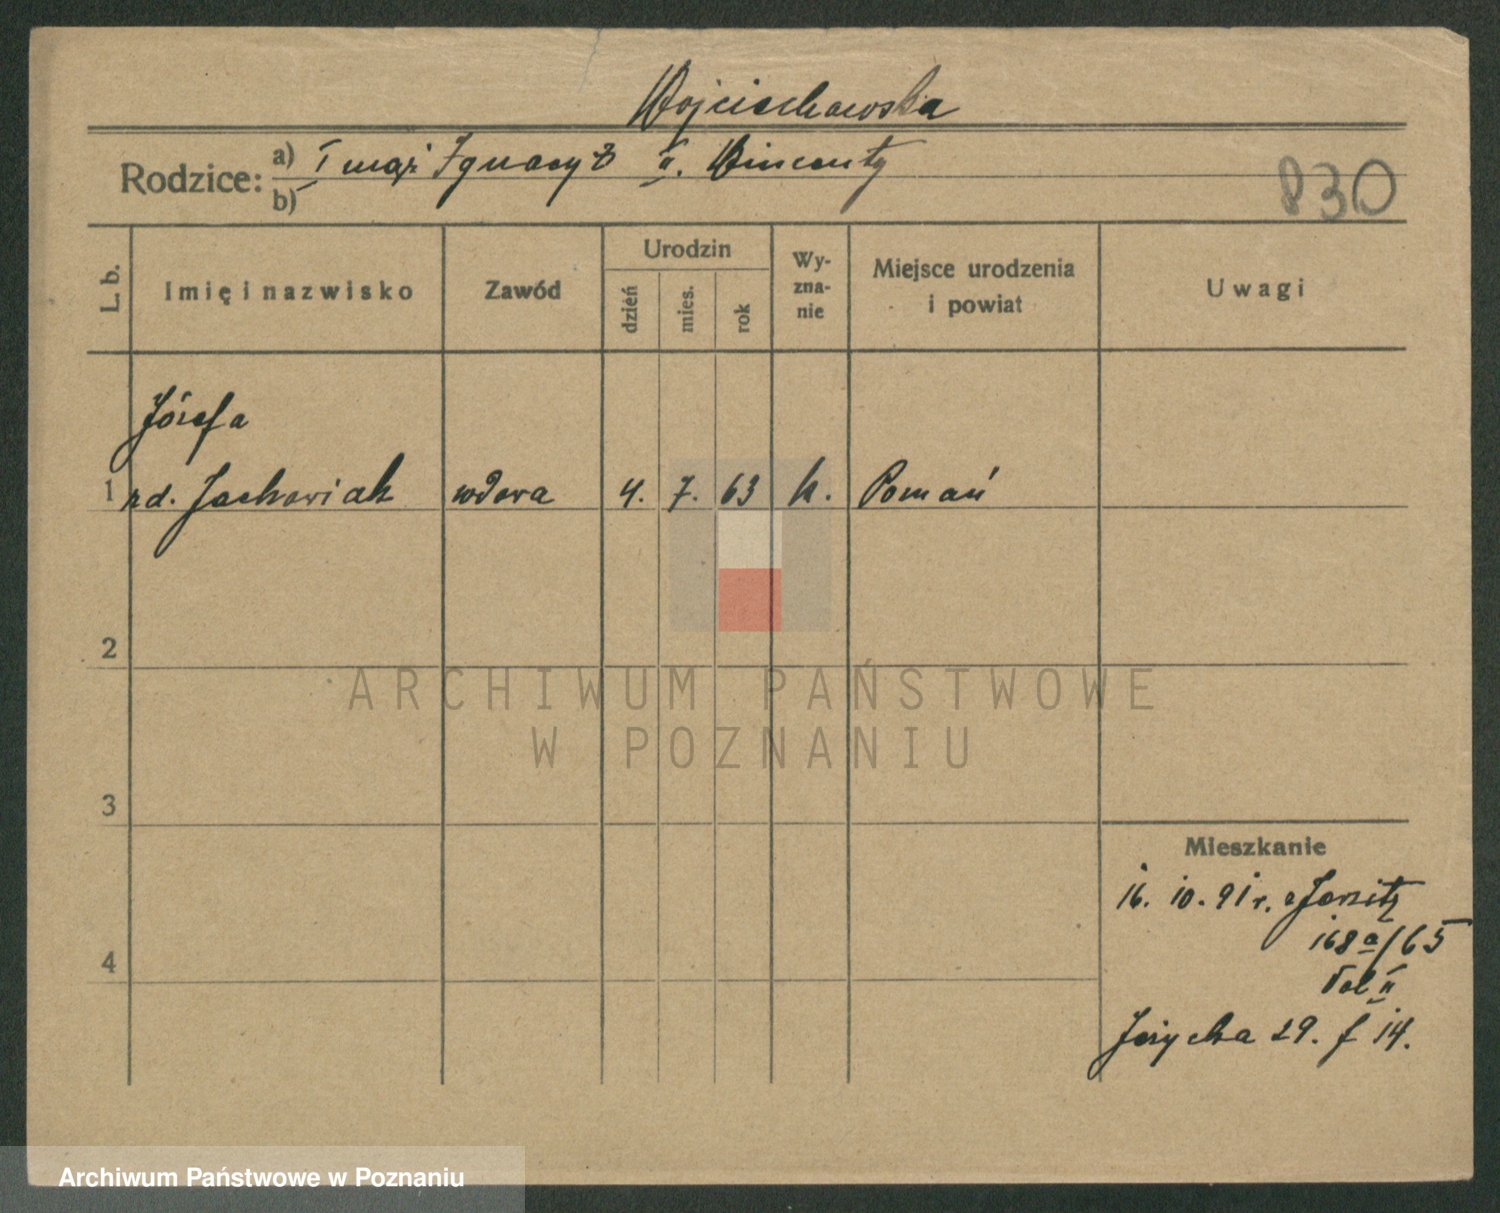 Wojciechowska
Rodzice: a) I mąż Ignacy z II. Wincenty
b)
830
L. b.
Imię i nazwisko
Zawód
Urodzin
dzień
mies.
rok
Wy-
zna-
nie
Miejsce urodzenia
i powiat
Uwagi
Józefa
1 zd. Jachowiak wdowa 4. 7. 63 k. Poznań
2
ARCHIWUM PAŃSTWOWE
W POZNANIU
3
4
Mieszkanie
16. 10. 91 r. Jersitz
168 a/65
Vol II
Jeżycka 29. f 14.
Archiwum Państwowe w Poznaniu